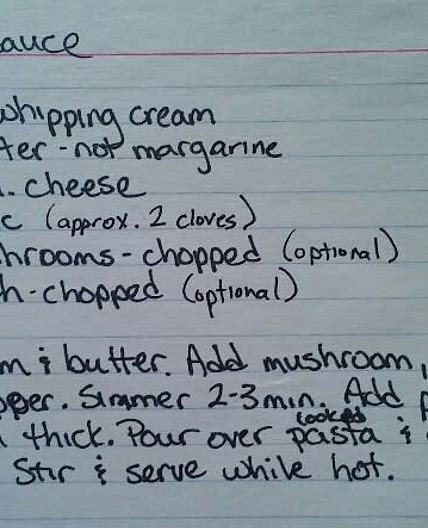 auce
whipping cream
ter - not margarine
. cheese
c (approx. 2 cloves)
hrooms - chopped (optional)
h - chopped (optional)
m & butter. Add mushroom,
pper. Simmer 2-3 min. Add
cooked
thick. Pour over pasta &
Stir & serve while hot.